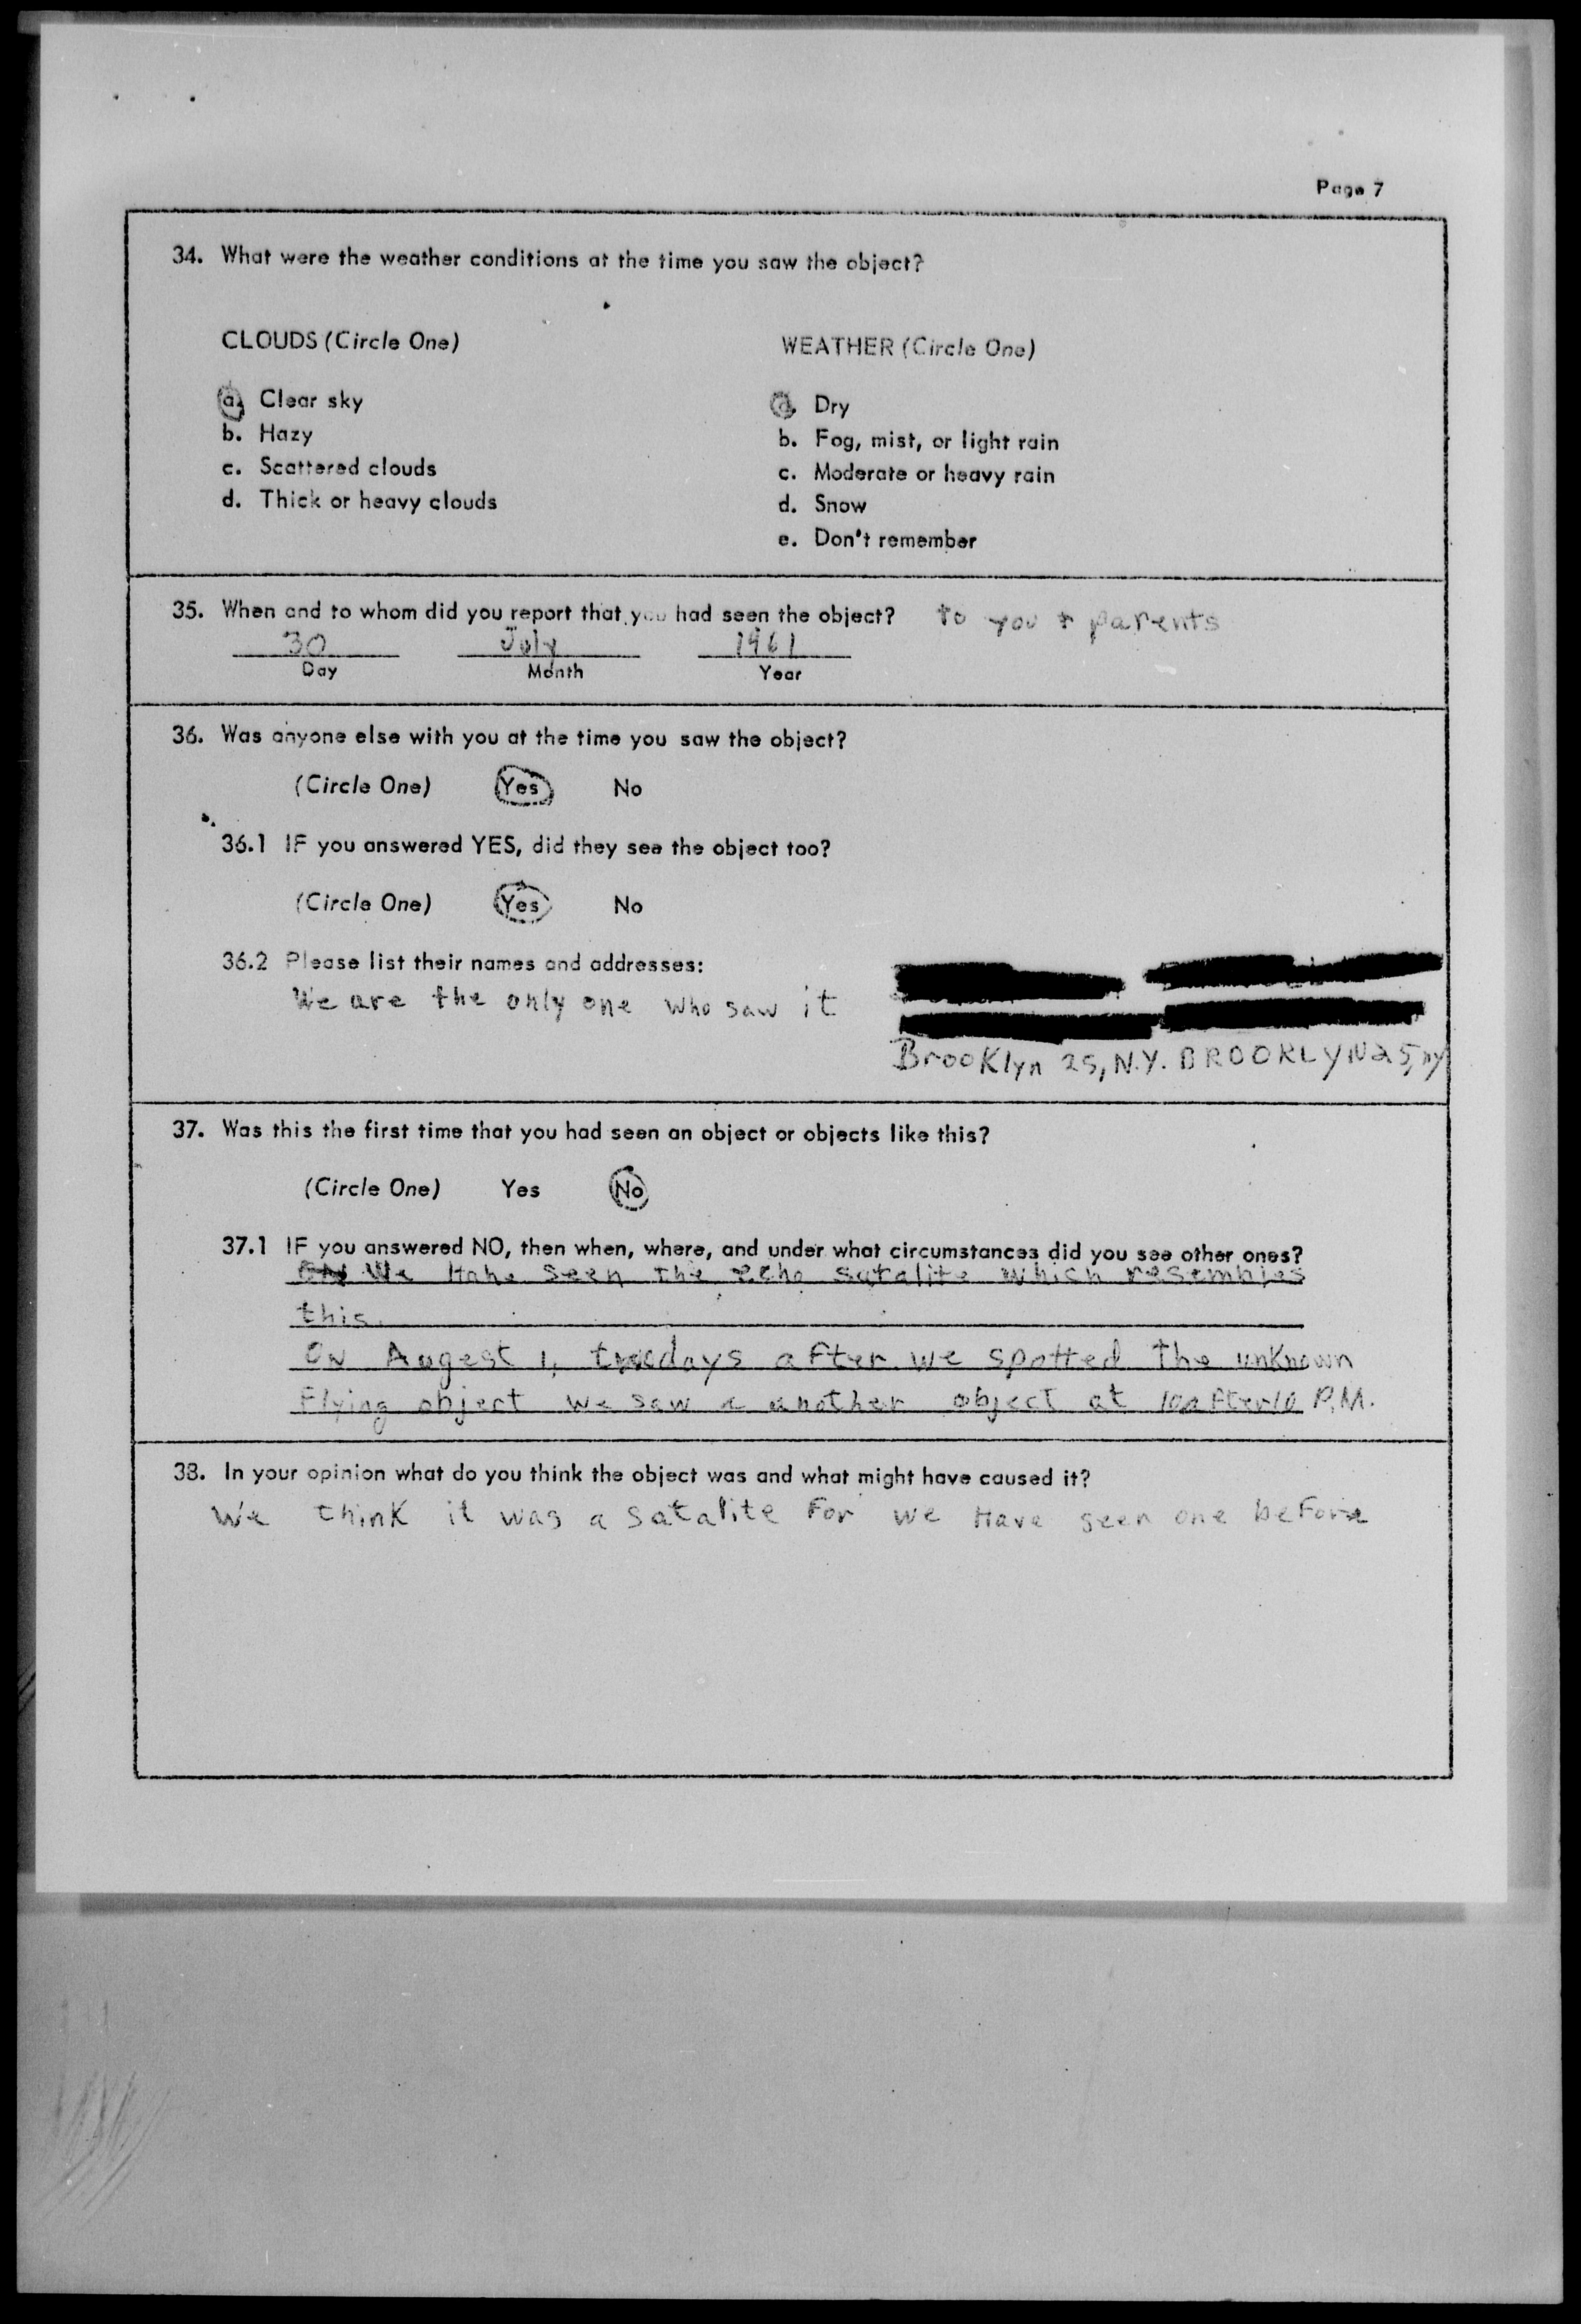 Page 7
34. What were the weather conditions at the time you saw the object?
CLOUDS (Circle One)
a. Clear sky
b. Hazy
c. Scattered clouds
d. Thick or heavy clouds
WEATHER (Circle One)
a. Dry
b. Fog, mist, or light rain
c. Moderate or heavy rain
d. Snow
e. Don't remember
35. When and to whom did you report that you had seen the object? to you + parents
30 July 1961
Day Month Year
36. Was anyone else with you at the time you saw the object?
(Circle One) Yes No
36.1 IF you answered YES, did they see the object too?
(Circle One) Yes No
36.2 Please list their names and addresses:
We are the only one who saw it
Brooklyn 25, N.Y. BROOKLYN 25, ny
37. Was this the first time that you had seen an object or objects like this?
(Circle One) Yes No
37.1 IF you answered NO, then when, where, and under what circumstances did you see other ones?
We Have seen the echo satalite which resembles
this.
ON Augest 1, two days after we spotted the unknown
Flying object we saw a another object at 10 after 10 P.M.
38. In your opinion what do you think the object was and what might have caused it?
We think it was a satalite For we Have seen one beFore